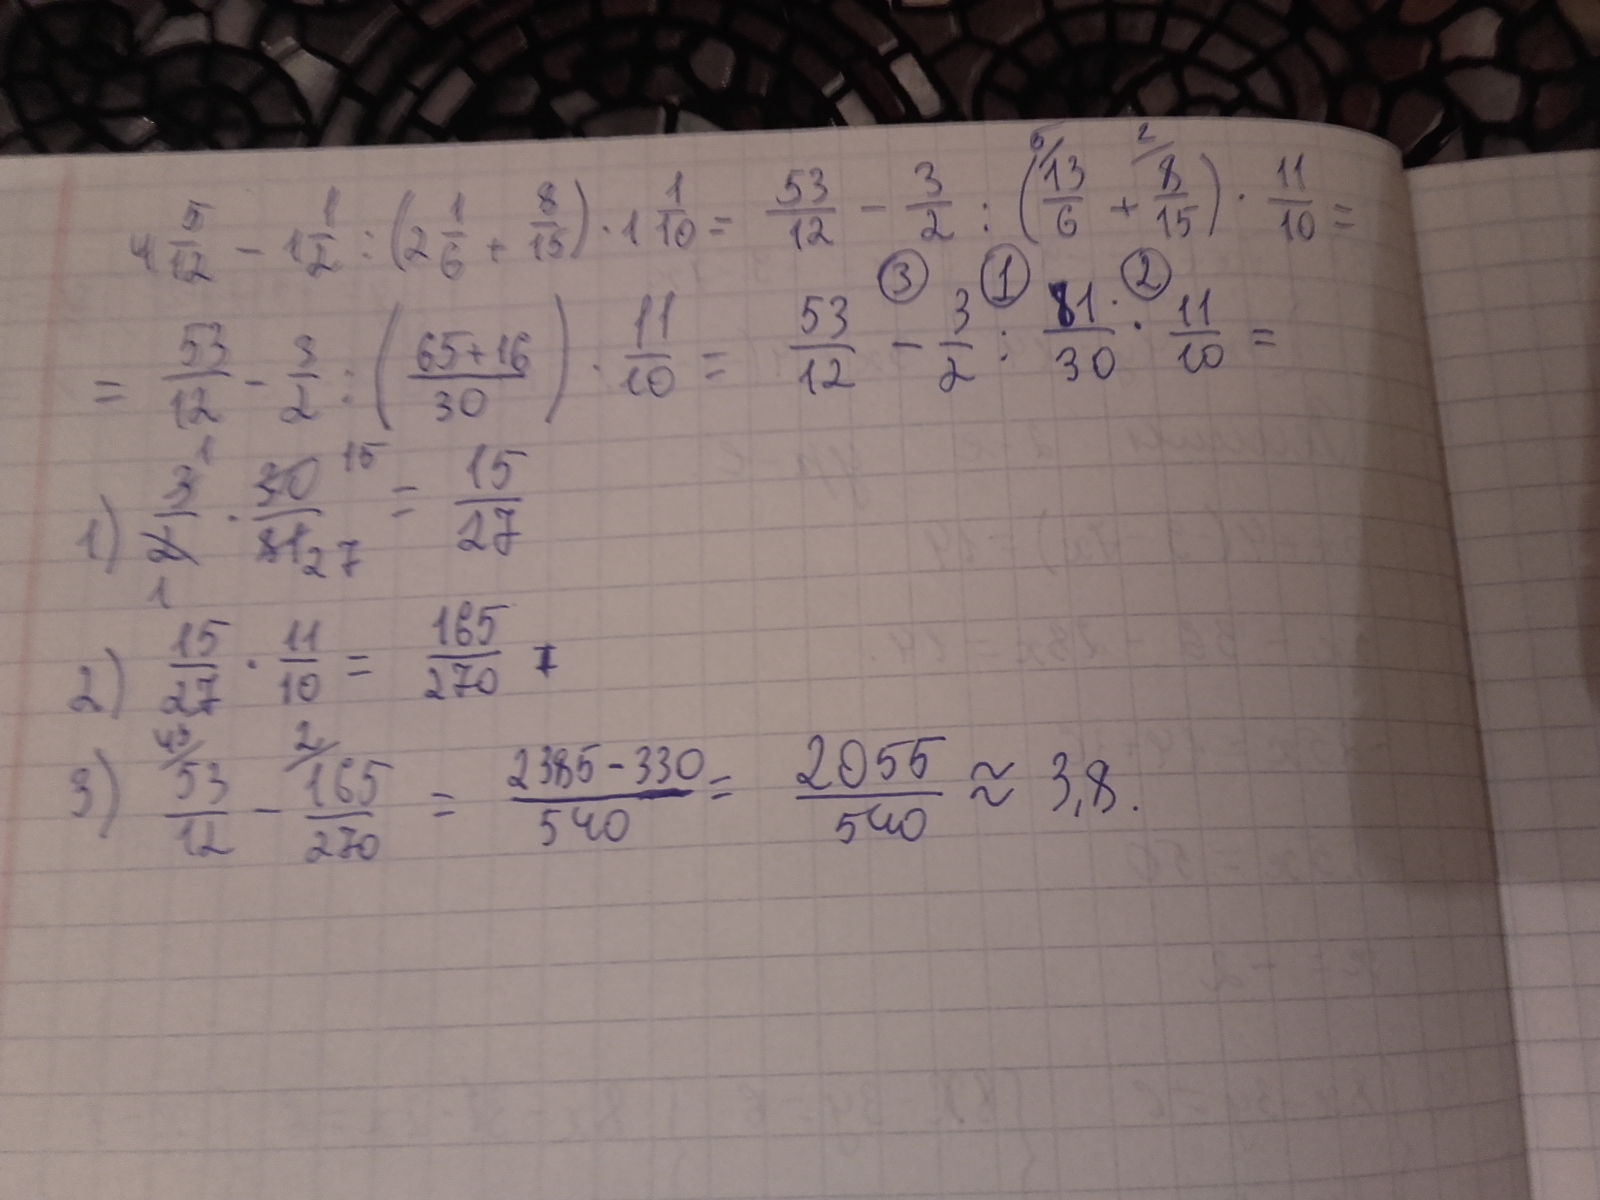 4 5/12 - 1 1/2 : (2 1/6 + 8/15) · 1 1/10 = 53/12 - 3/2 : (5/ 13/6 + 2/ 8/15) · 11/10 =
= 53/12 - 3/2 : (65+16/30) · 11/10 = 53/12 ③ - 3/2 ① : 81/30 ② · 11/10 =
1) 3 1/2 1 · 30 15/81 27 = 15/27
2) 15/27 · 11/10 = 165/270
3) 45/ 53/12 - 2/ 165/270 = 2385-330/540 = 2055/540 ≈ 3,8.